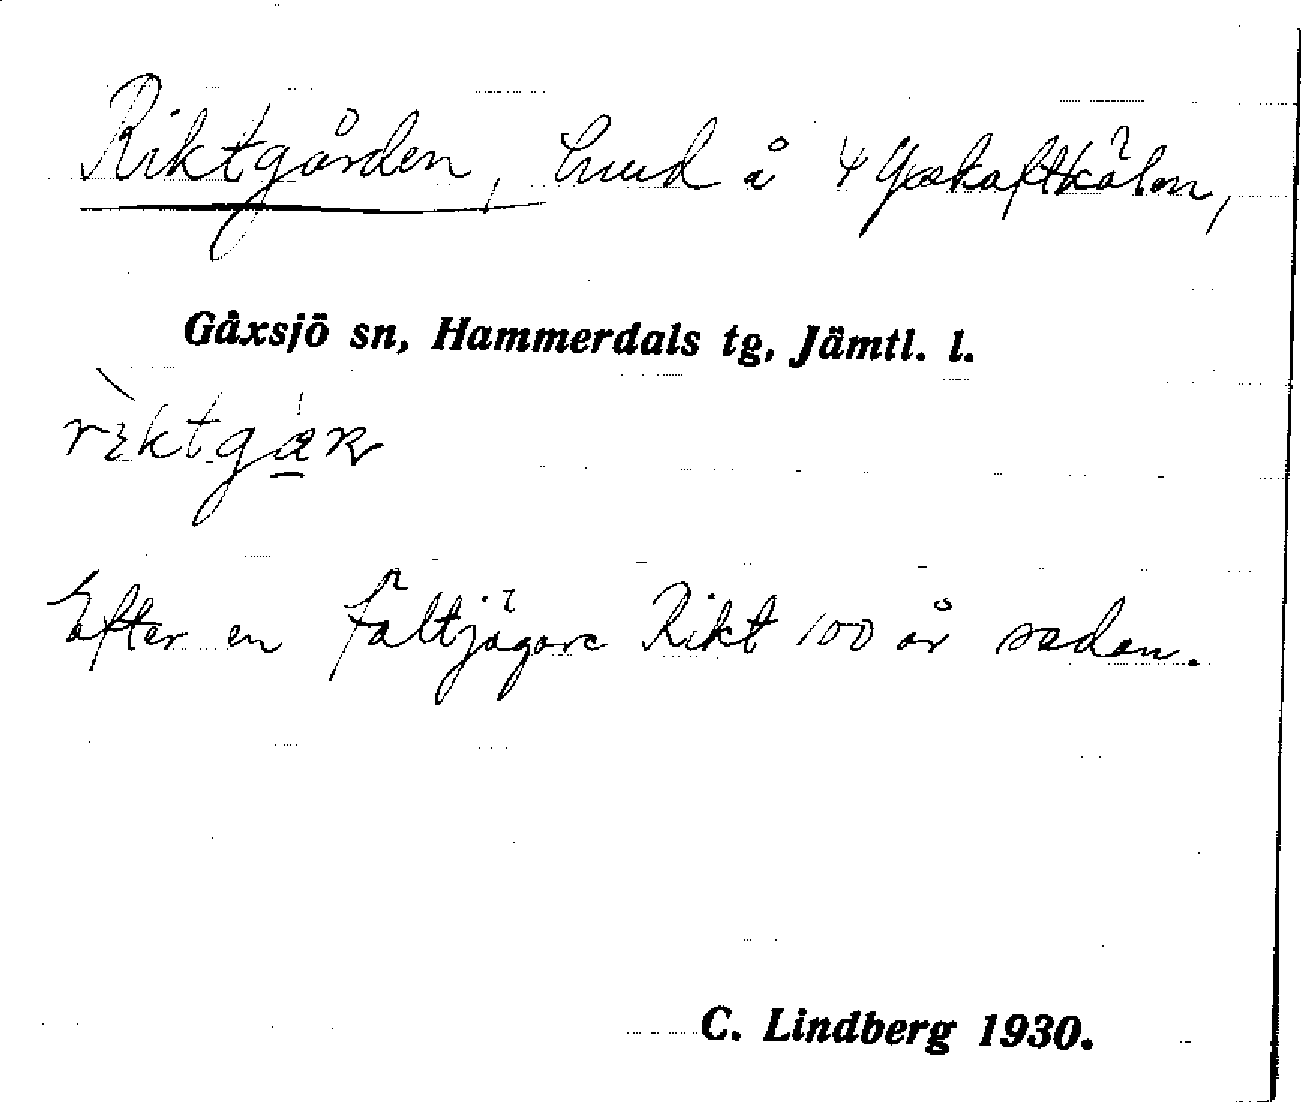 Riktgården, hmd å 4 Yxskaftkälen,
Gåxsjö sn, Hammerdals tg, Jämtl. l.
rìktgáṟ
Efter en Fältjägare Rikt 100 år sedan.
C. Lindberg 1930.